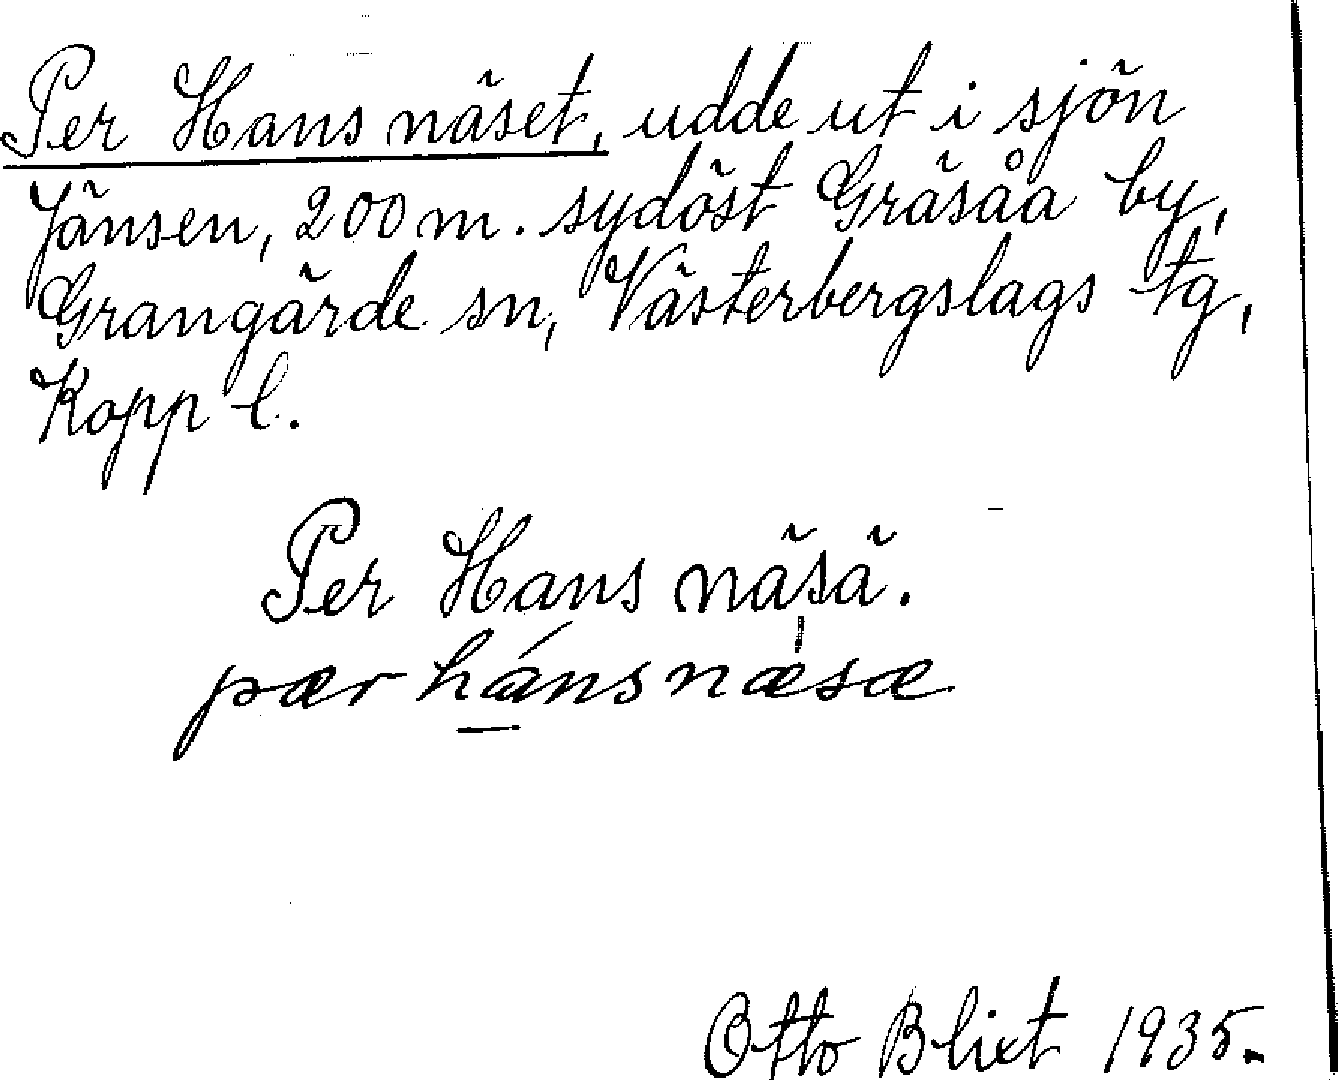 Per Hans näset, udde ut i sjön
Jänsen, 200 m. sydöst Gräsåa by,
Grangärde sn, Västerbergslags tg,
Kopp l.
Per Hans näsä.
pær hánsnæsæ
Otto Blixt 1935.